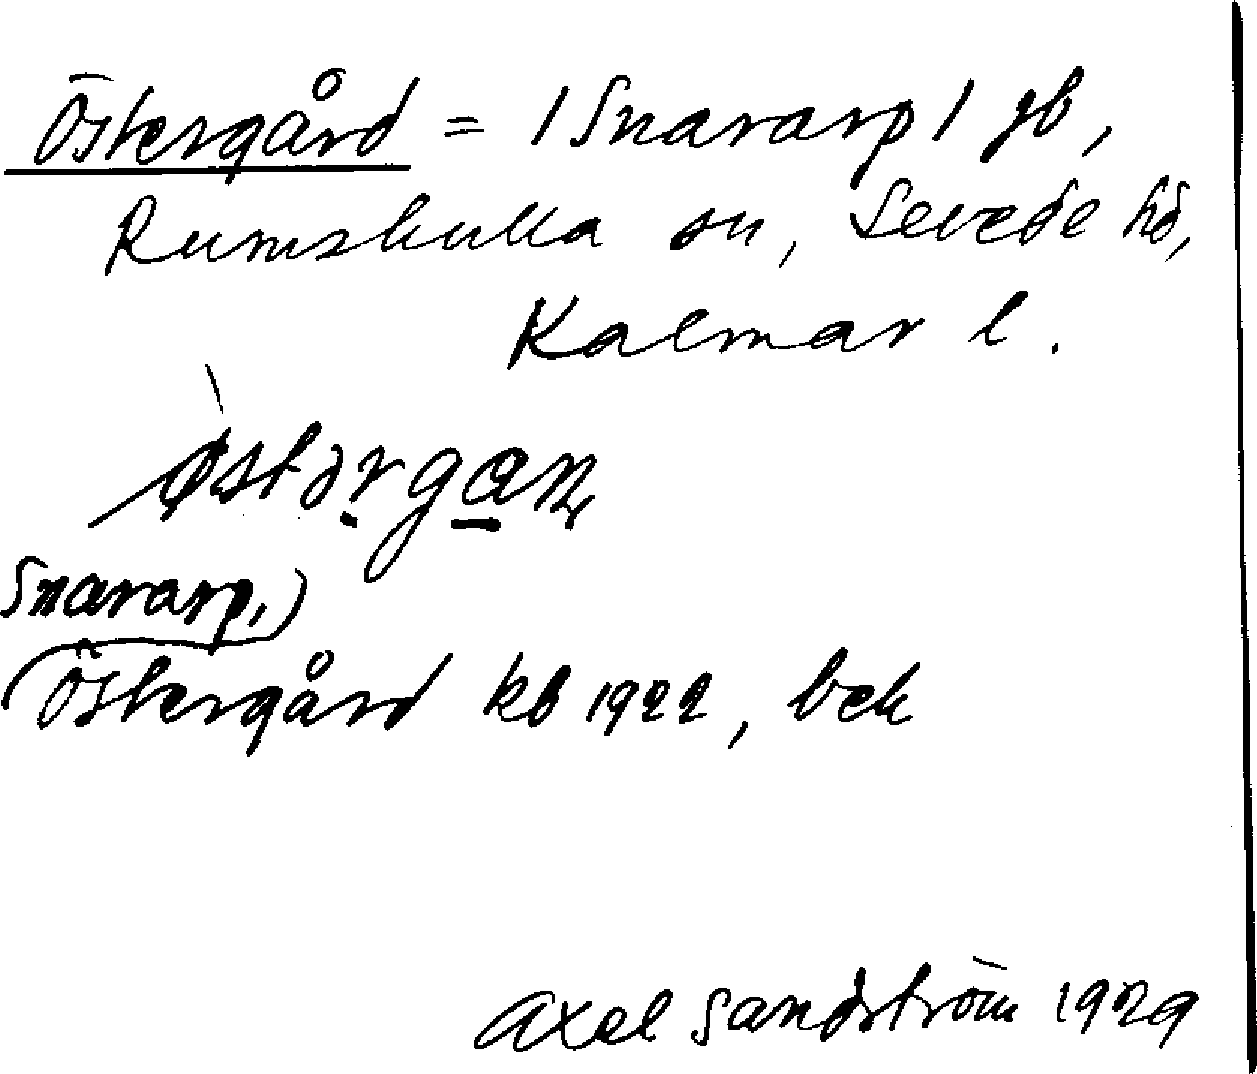 Östergård = / Snararp / gb,
Rumskulla sn, Sevede hd,
Kalmar l.
Snararp,
Östergård kb 1922, bek
Axel Sandström 1929